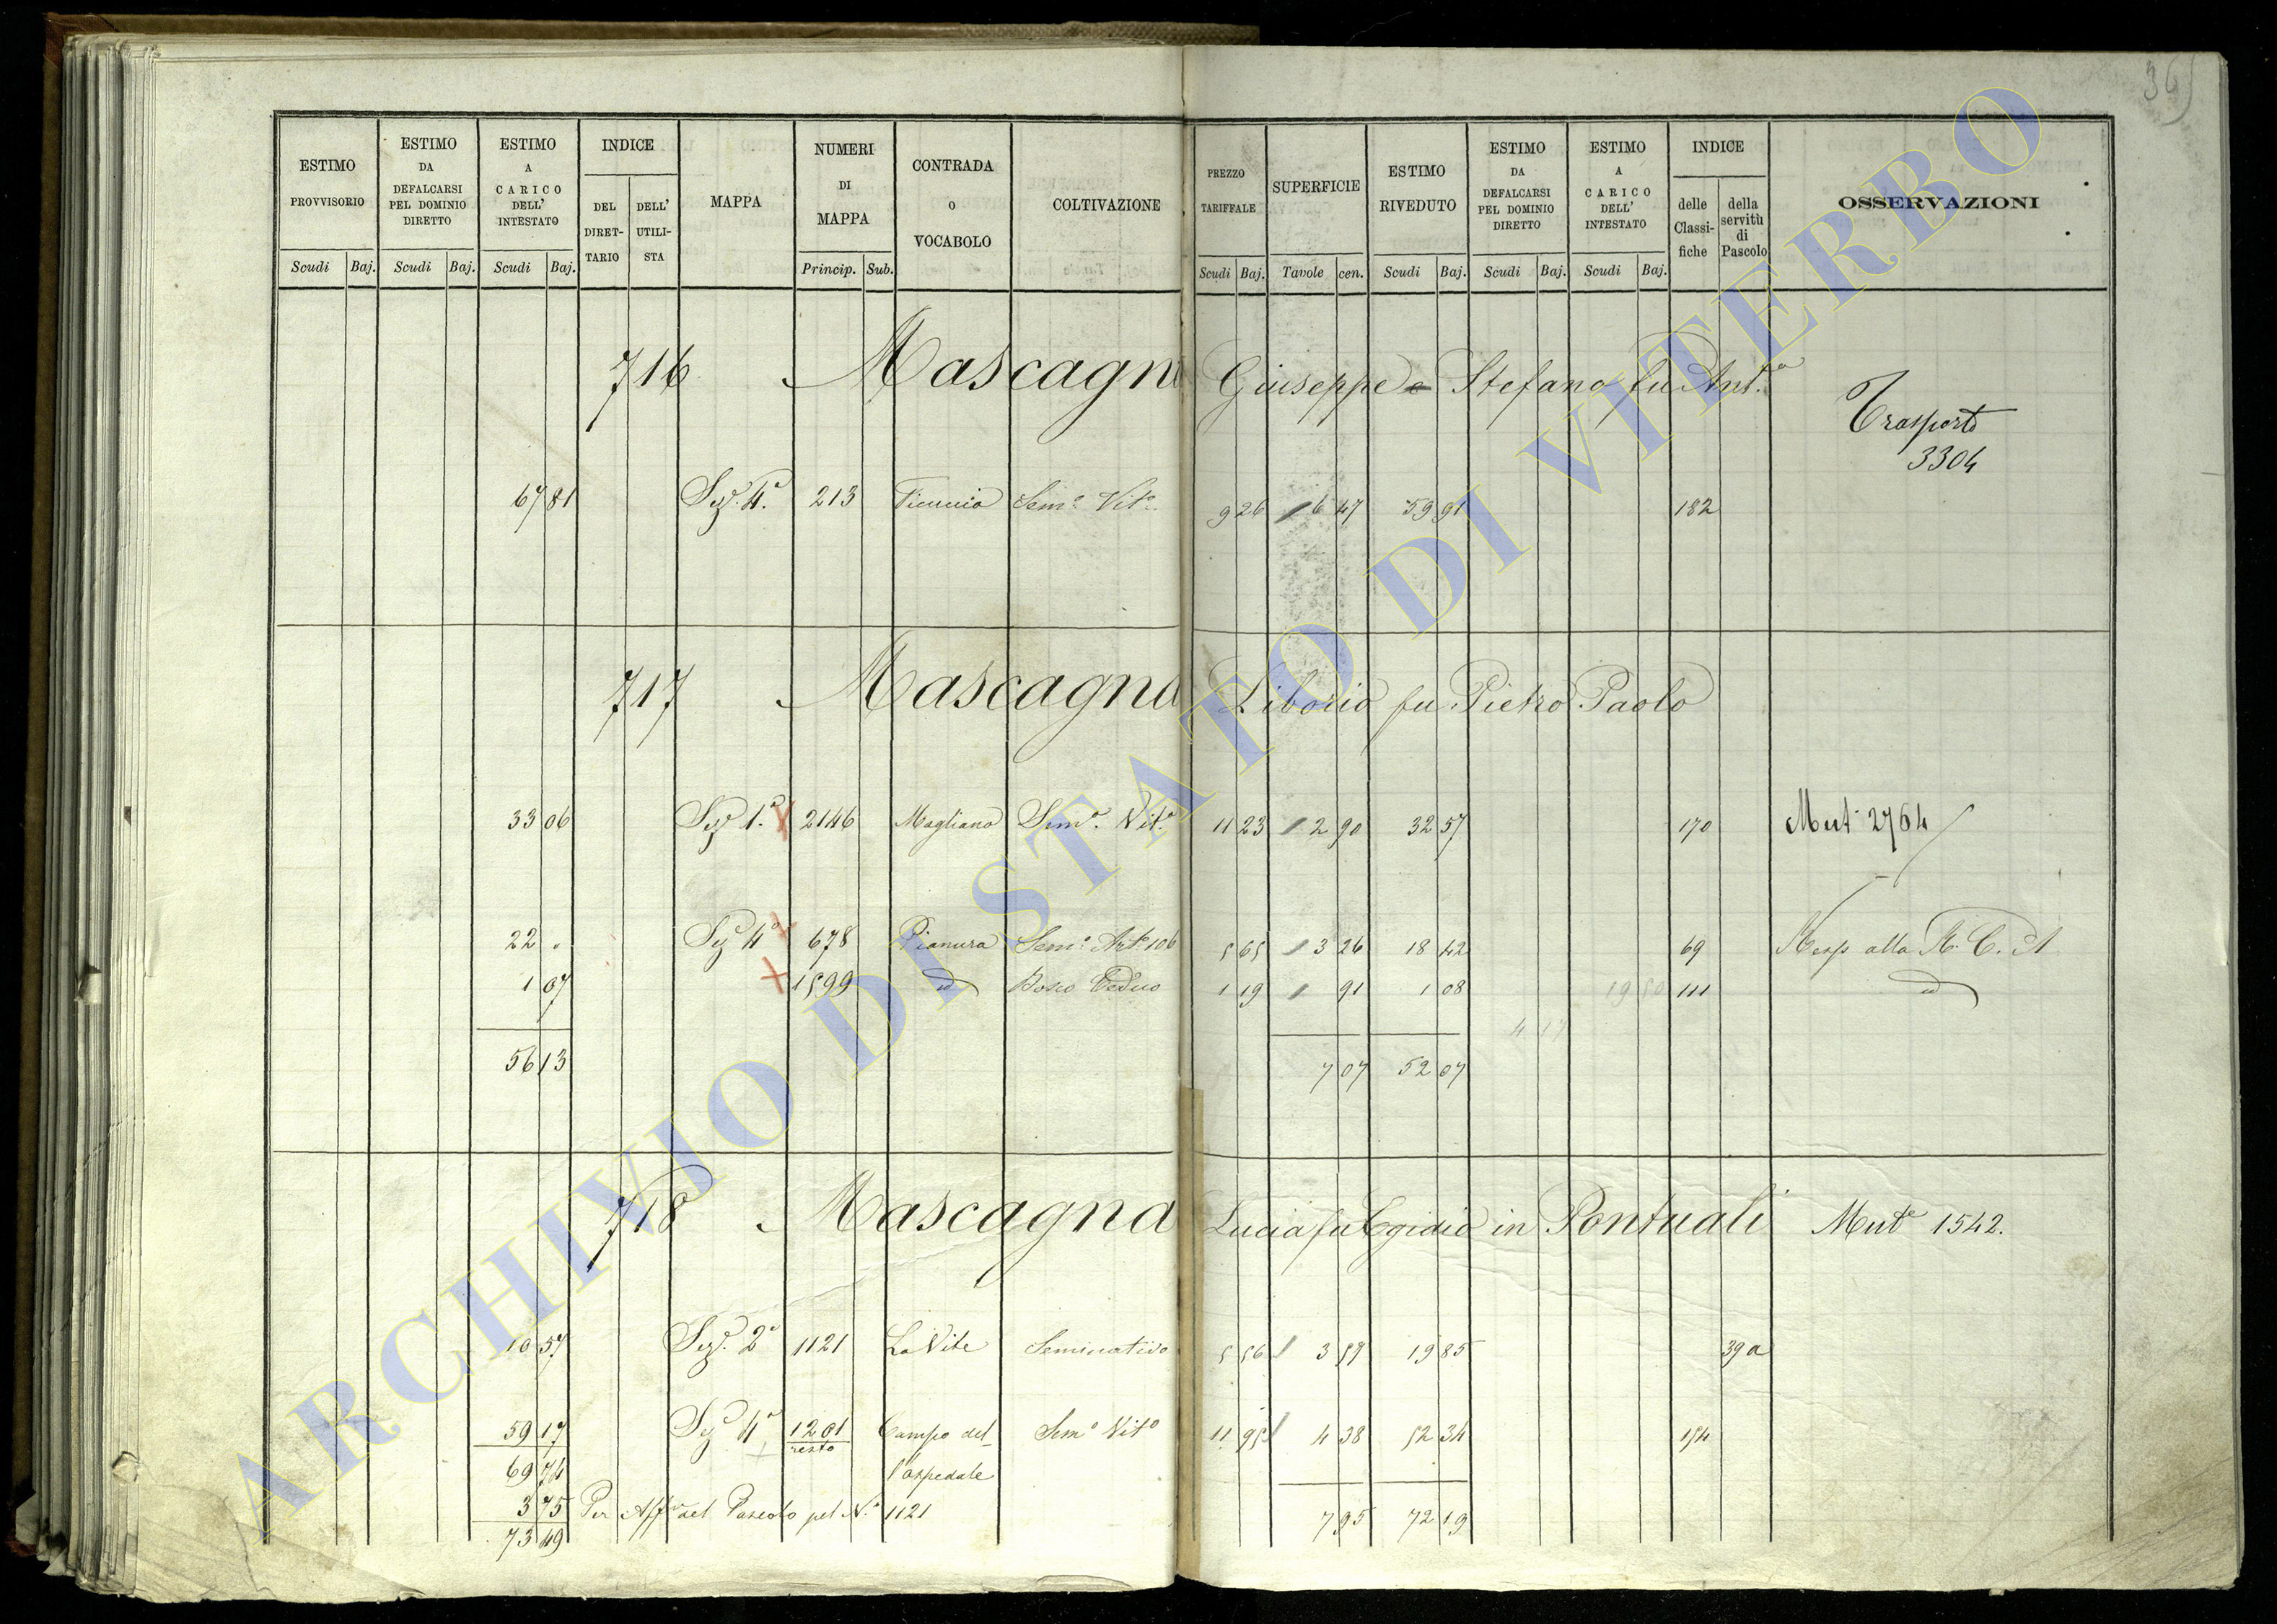 365
ESTIMO PROVVISORIO
ESTIMO DA DEFALCARSI PEL DOMINIO DIRETTO
ESTIMO A CARICO DELL' INTESTATO
INDICE
DEL DIRETTARIO
DELL' UTILISTA
MAPPA
NUMERI DI MAPPA
CONTRADA O VOCABOLO
COLTIVAZIONE
PREZZO TARIFFALE
SUPERFICIE
ESTIMO RIVEDUTO
ESTIMO DA DEFALCARSI PEL DOMINIO DIRETTO
ESTIMO A CARICO DELL' INTESTATO
INDICE
delle Classifiche
della servitù di Pascolo
OSSERVAZIONI
Scudi Baj. Scudi Baj. Scudi Baj. Princip. Sub. Scudi Baj. Tavole cen. Scudi Baj. Scudi Baj. Scudi Baj.
716 Mascagni Giuseppe e Stefano fu Ant.º
Trasporto
3304
67 81 Sez. 4ª 213 Semº Vitº 9 26 6 47 59 91 182
717 Mascagna Liborio fu Pietro Paolo
33 06 Sez 1ª 2146 Magliano Semº Vitº 11 23 2 90 32 57 170 Mut 2764
22 " Sez 4ª 678 Pianura Semº Artº 106 5 65 3 26 18 42 69 Resp alla R. C. A
1 07 1599 id Bosco Ceduo 1 19 91 1 08 19 50 111 id
4 17
56 13 7 07 52 07
718 Mascagna Lucia fu Egidio in Pontuali Mutº 1542.
10 57 Sez. 2ª 1121 La Vite Seminativo 5 56 3 59 19 85 39a
59 17 Sez 4ª 1201 resto Campo dell'ospedale Semº Vitº 11 95 4 38 52 34 154
69 74
3 75 Per Aff.ne del Pascolo pel Nº 1121 7 95 72 19
73 49
ARCHIVIO DI STATO DI VITERBO